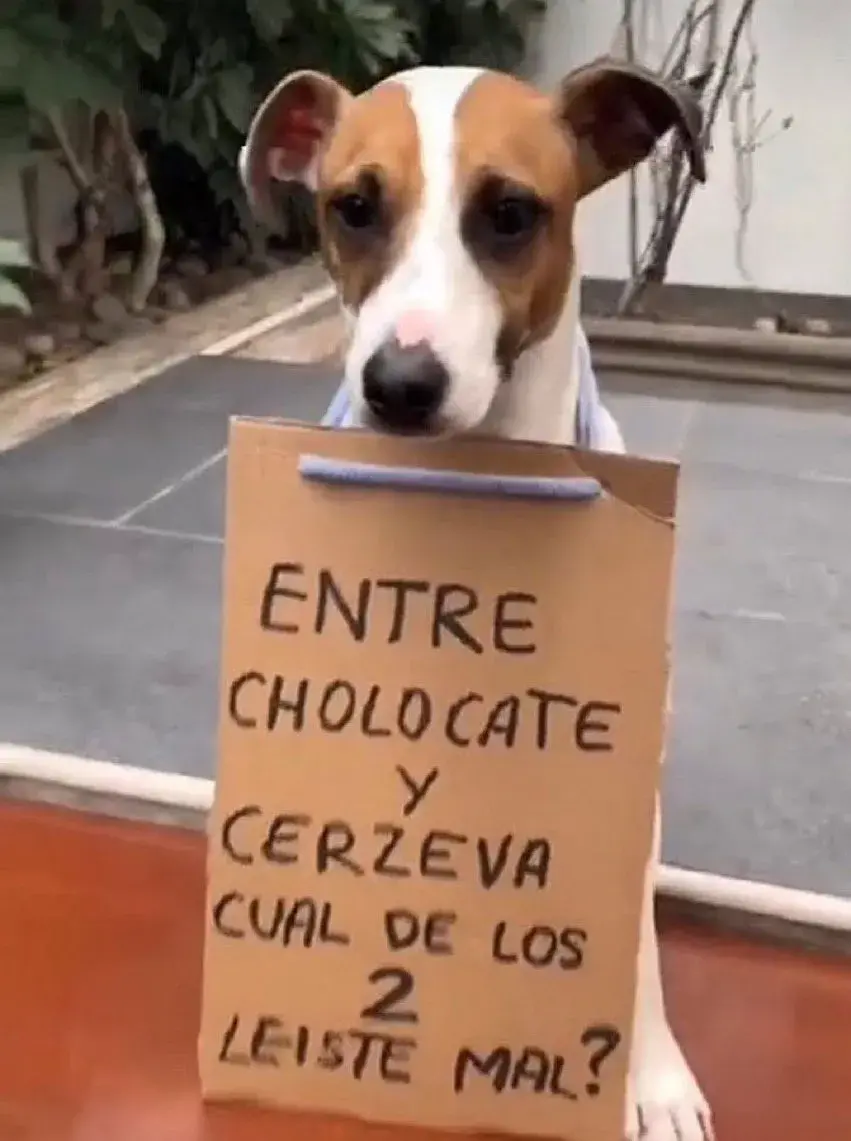 ENTRE
CHOLOCATE
Y
CERZEVA
CUAL DE LOS
2
LEISTE MAL?